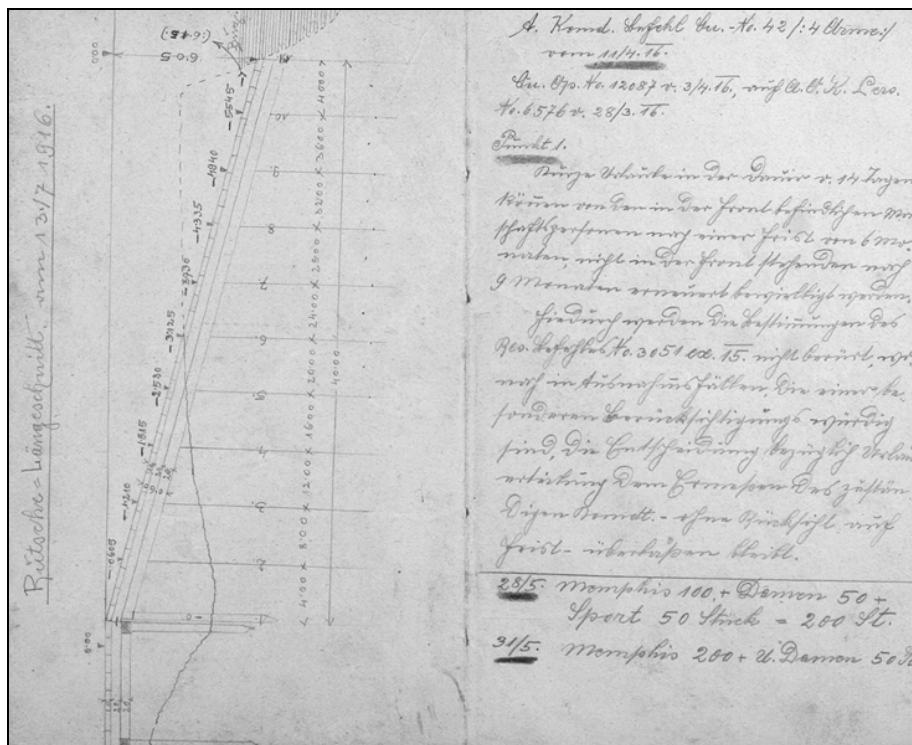 Rutsche-Längeschnitt. am 13/7 1916.
0.00
6.05
(:6.45:)
-5545
-4940
-4335
-3930
-3125
-2530
-1815
-1210
-0605
11
10
9
8
7
6
5
4
3
2
4.00 x 8.00 x 12.00 x 16.00 x 20.00 x 24.00 x 28.00 x 32.00 x 36.00 x 40.00
40.00
A. Komd. Befehl Gu.-No. 42 /:4 Armee:/
vom 11/4. 16.
Gu. Op. No. 12087 v. 3/4. 16, auf A.O.K. Pers.
No. 6576 v. 28/3. 16.
Punkt 1.
Kurze Urlaube in der Dauer v. 14 Tagen
können von den in der Front befindlichen Mann
schaftspersonen nach einer Frist von 6 Mo-
naten, nicht in der Front stehenden nach
9 Monaten erneuert bewilligt werden.
Hiedurch werden die Bestimungen des
Res. Befehles No. 3051 ex. 15. nicht berürt, wo
nach in Ausnahmsfällen, die einer be-
sonderen Berücksichtigungs würdig
sind, die Entscheidung bezüglich Urlaub
erteilung dem Ermeßen des zustän
digen Komdt. - ohne Rücksicht auf
Frist - überlaßen bleibt.
28/5. Memphis 100, + Damen 50 +
Sport 50 Stück = 200 St.
31/5. Memphis 200 + U. Damen 50 St